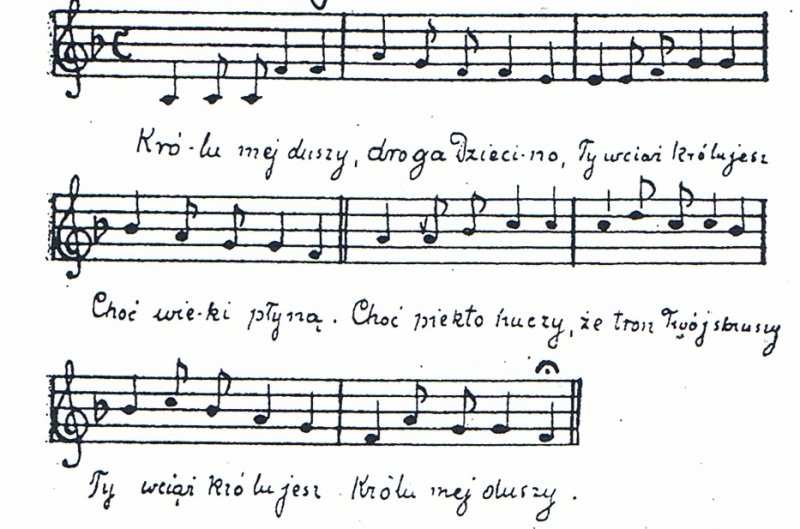 Kró-lu mej duszy, droga Dzieci-no, Ty wciąż królujesz
Choć wie-ki płyną. Choć piekło huczy, że tron Twój skruszy
Ty wciąż królujesz Królu mej duszy.